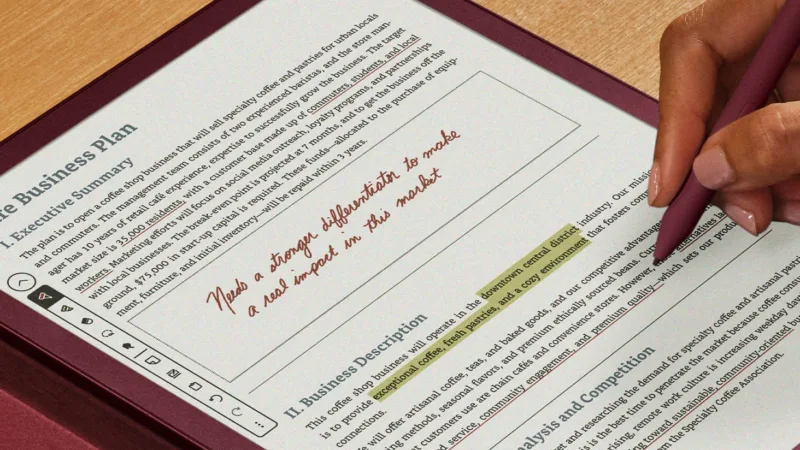 fe Business Plan
I. Executive Summary
The plan is to open a coffee shop business that will sell specialty coffee and pastries for urban locals
and commuters. The management team consists of two experienced baristas, and the store man-
ager has 10 years of retail café experience, expertise to successfully grow the business. The target
market size is 35,000 residents, with a customer base made up of commuters, students, and local
workers. Marketing efforts will focus on social media outreach, loyalty programs, and partnerships
with local businesses. The break-even point is projected at 7 months, and to get the business off the
ground, $75,000 in start-up capital is required. These funds—allocated to the purchase of equip-
ment, furniture, and initial inventory—will be repaid within 3 years.
Needs a stronger differentiator to make
a real impact in this market
II. Business Description
This coffee shop business will operate in the downtown central district
industry. Our missi
is to provide exceptional coffee, fresh pastries, and a cozy environment that fosters com
connections.
We will offer artisanal coffee, teas, and baked goods, and our competitive advantag
ing methods, seasonal flavors, and premium ethically sourced beans. Curr
t customers use are chain cafés and convenience stores. However, alternatives la
d service, community engagement, and premium quality—which sets our produc
nalysis and Competition
et and researching the demand for specialty coffee and artisanal past
is the best time to penetrate the market because coffee cons
rising, remote work culture is increasing weekday da
ing toward sustainable, community-oriented bu
m the Specialty Coffee Association.